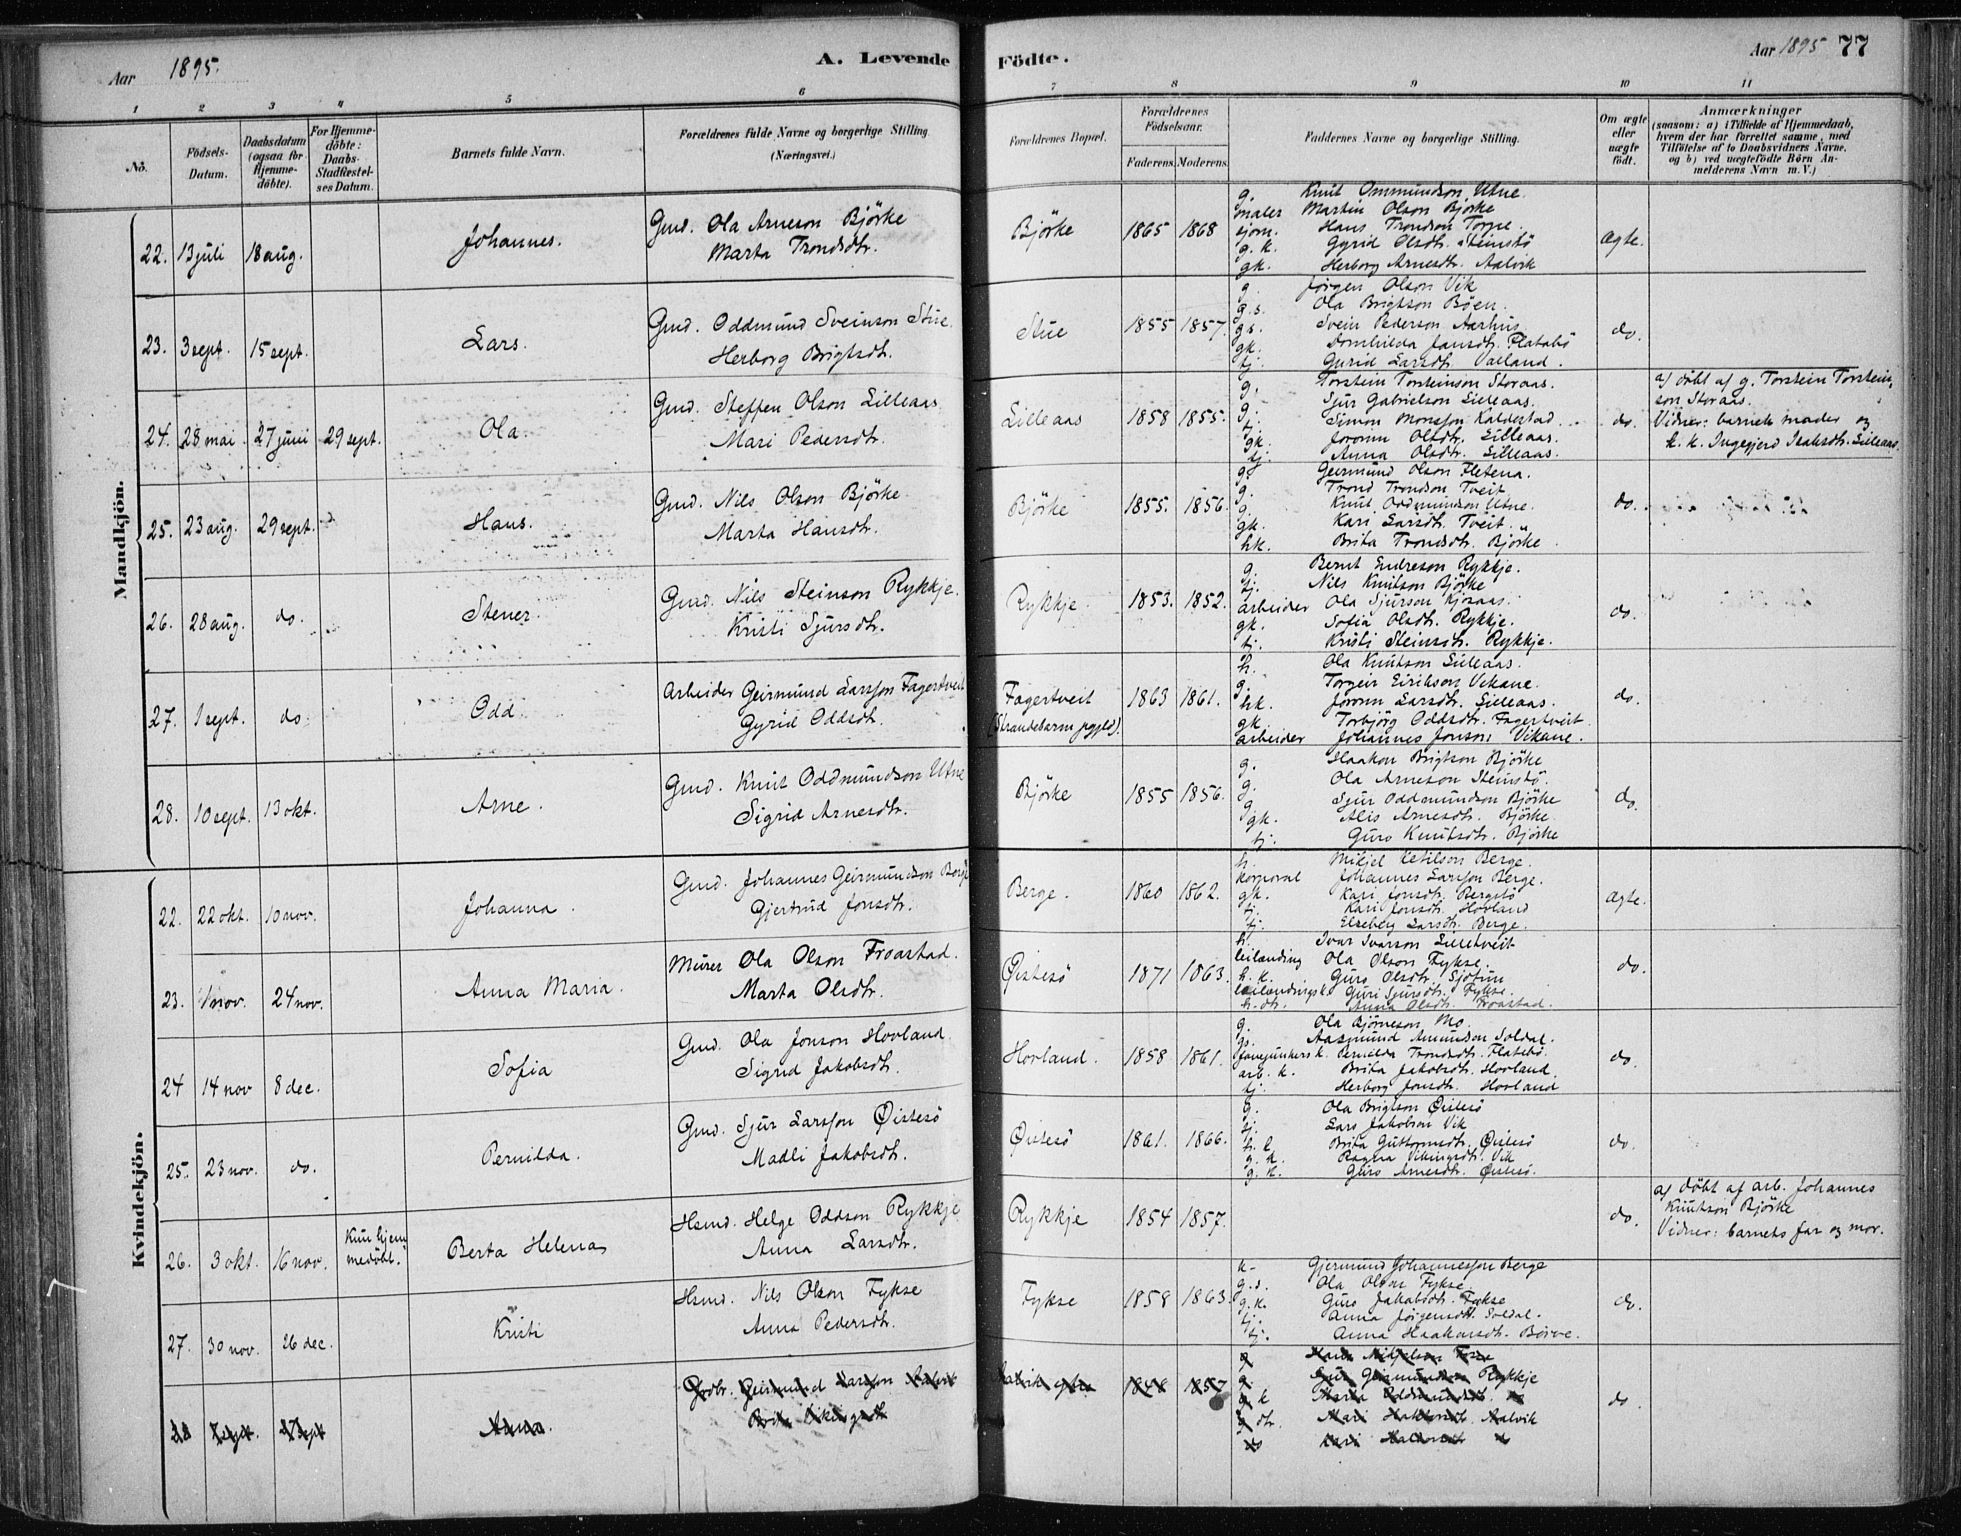 Aar 1895.
A. Levende Födte.
Aar 1895 77
1 2 3 4 5 6 7 8 9 10 11
No.
Födsels-Datum.
Daabsdatum (ogsaa for Hjemme-döbte).
For Hjemme-döbte: Daabs-Stadfæstel-ses Datum.
Barnets fulde Navn.
Forældrenes fulde Navne og borgerlige Stilling (Næringsvei.)
Forældrenes Bopæl.
Forældrenes Födselsaar.
Faderens. Moderens.
Faddernes Navne og borgerlige Stilling.
Om ægte eller uægte födt.
Anmærkninger
(saasom: a) i Tilfælde af Hjemmedaab,
hvem der har forrettet samme, med
Tilföielse af to Daabsvidners Navne,
og b) ved uægtefödte Börn An-
melderens Navn m. V.)
Mandkjön.
22. 13 juli 18 aug. Johannes. Gmd. Ola Arneson Bjørke
Marta Trondsdtr.
Bjørke 1865 1868 Ægte.
g. Knut Ommundson Utne
maler Martin Olson Bjørke
sjøm. Hans Trondson Torpe.
g. k. Gyrid Olsdtr. Steinstø
gk. Herborg Arnesdtr. Aalvik
23. 3 sept. 15 sept. Lars. Gmd. Oddmund Sveinson Stue.
Herborg Brigtsdtr.
Stue 1855 1857. do.
g. Jørgen Olson Vik
g.s. Ola Brigtson Bøen.
gs. Svein Pederson Aarhus
gk. Jansdtr. Flatabø
tj. Gurid Larsdtr. Valland.
24. 28 mai. 27 juni 29 sept. Ola. Gmd. Steffen Olson Lilleaas
Mari Pedersdtr.
Lilleaas 1858 1855. do.
g. Torstein Torsteinson Storaas.
g. Sjur Gabrielson Lilleaas.
tj. Simon Monsson Kaldestad
gk. Joronn Olsdtr. Lilleaas.
tj. Anna Olsdtr. Lilleaas.
a) døbt af g. Torstein Torstein-
son Storaas.
Vidner: barnets moder og
k. k. Ingegjerd Isaksdtr. Lilleaas.
25. 23 aug. 29 sept. Hans. Gmd. Nils Olson Bjørke
Marta Hansdtr.
Bjørke 1855. 1856. do.
g. Geirmund Olson Fletena.
g. Trond Trondson Tveit
g. Knut Oddmundson Utne.
gk. Kari Larsdtr. Tveit
hk. Brita Trondsdtr. Bjørke.
26. 28 aug. do. Stener. Gmd. Nils Steinson Rykkje.
Kristi Sjursdtr.
Rykkje. 1853. 1852. do.
g. Bernt Endreson Rykkje.
tj. Nils Knutson Bjørke
arbeider Ola Sjurson
gk. Sofia Olsdtr. Rykkje.
tj. Kristi Steinsdtr. Rykkje.
27. 1 sept. do. Odd. Arbeider Geirmund Larsson Fagertveit
Gyrid Oddsdtr.
Fagertveit
(Strandebarm pgjeld). 1863 1861. do.
h. Ola Knutson Lilleaas.
g. Torgeir Eirikson Vikane.
hk. Joronn Larsdtr. Lilleaas.
gk. Torbjørg Oddsdtr. Fagertveit.
arbeider Johannes Jonson Vikane.
28. 10 sept. 13 okt. Arne. Gmd. Knut Oddmundson Utne
Sigrid Arnesdtr.
Bjørke 1855 1856. do.
g. Haakon Brigtson Bjørke
g. Ola Arneson Steinstø.
g. Sjur Oddmundson Bjørke
gk. Alis Arnesdtr. Bjørke.
tj. Guro Knutsdtr. Bjørke
Kvindekjön.
22. 22 okt. 10 nov. Johanna. Gmd. Johannes Geirmundson Berge
Gjertrud Jonsdtr.
Berge. 1860 1862. Ægte.
h. Mikjel Ketilson Berge.
korporal Johannes Larsson Berge.
gk. Kari Jonsdtr. Bergstø
tj. Kari Jonsdtr. Hovland
tj. Elseberg Larsdtr. Berge.
23. 1 nov. 24 nov. Anna Maria. Murer Ola Olson Froastad.
Marta Olsdtr.
Øistesø 1871 1863. do.
h. Ivar Ivarson Lilletveit
leilænding Ola Olson Fykse.
h. k. Guro Olsdtr. Sjotun
leilændingsk. Guri Sjursdtr. Fykse.
h. dtr. Anna Olsdtr. Froastad.
24 14 nov 8 dec. Sofia Gmd. Ola Jonson Hovland
Sigrid Jakobsdtr.
Hovland. 1858 1861. do.
g. Ola Bjørneson Mo.
gs. Aasmund Amundson Soldal.
k. Pernilda Trondsdtr. Flatebø.
arb. k. Brita Jakobsdtr. Hovland.
tj. Herborg Jonsdtr. Hovland
25. 23 nov. do. Pernilda. Gmd. Sjur Larsson Øistesø
Madli Jakobsdtr.
Øistesø 1861. 1866. do.
g. Ola Brigtson Øistesø
tj. Lars Jakobson Vik
h. k Brita Guttormsdtr. Øistesø
g. k. Ragna Vikingsdtr. Vik
g. k. Guro Arnesdtr. Øistesø.
26. 3 okt. 16 nov. Kun hjem-
medøbt. Berta Helena Hsmd. Helge Oddson Rykkje
Anna Larsdtr.
Rykkje 1854 1857. do.
a) døbt af arb. Johannes
Knutson Bjørke
Vidner: barnets far og mor.
27. 30 nov. 26 dec. Kristi Hsmd. Nils Olson Fykse
Anna Pedersdtr.
Fykse 1858 1863. do.
k- Gjermund Johannesson Berge
g.s. Ola Olson Fykse
g.k. Guro Jakobsdtr. Fykse
tj. Anna Jørgensdtr. Soldal.
tj. Anna Haakonsdtr. Børve.
28 7 sept. 27 sept Anna. Grdbr. Geirmund Larsson Aalvik
Brita Vikingsdtr
Aalvik ytre 1848 1857 do.
g Mikjelson
g. Sjur Geirmundson Rykkje
g k Marta Oddmundsdtr do
g dtr. Mari Aalvik
do Kari do